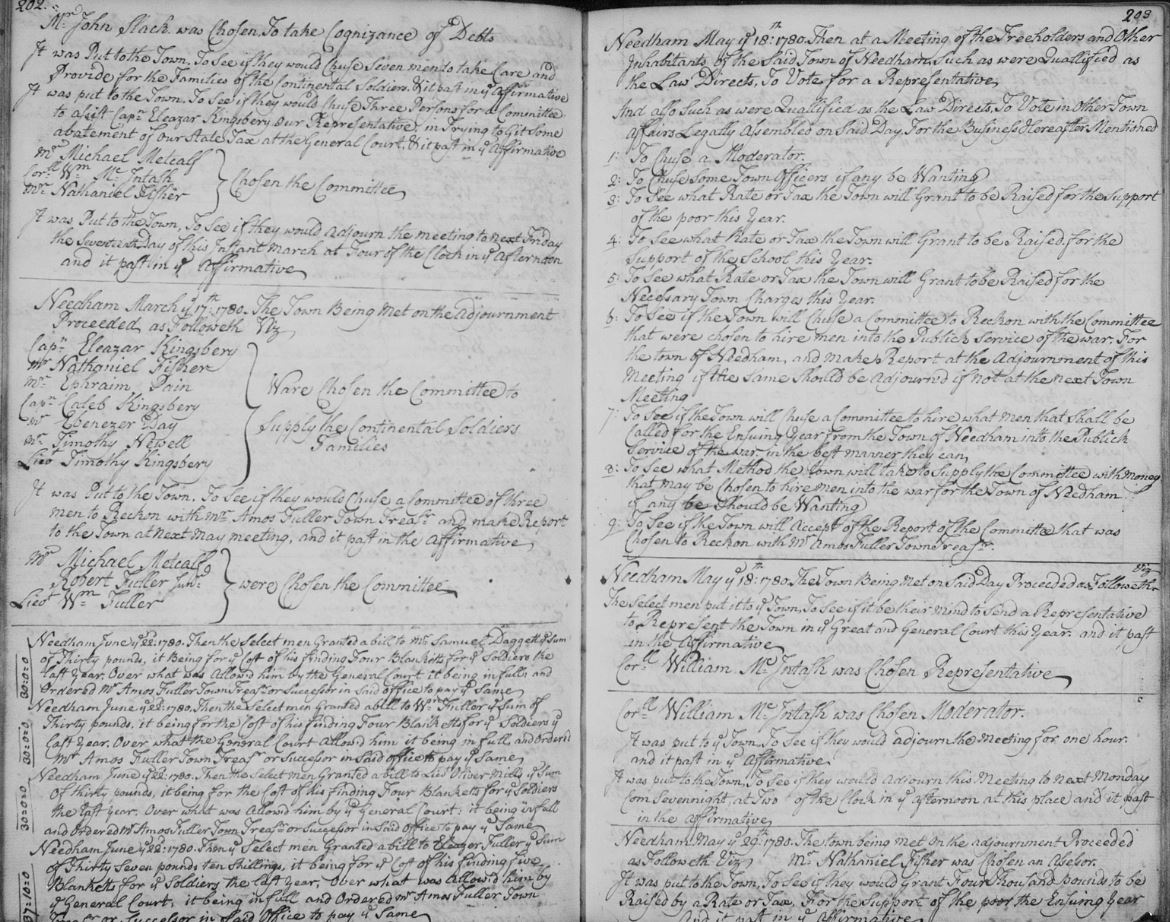 202.
Mr John Slack was Chosen To take Cognizance of Debts
It was Put to the Town, To See if they would Chuse Seven men to take Care and
Provide for the Families of the Continental Soldiers. & it past in ye Affirmative
It was put to the Town, To See if they would Chuse Three Persons for a Committee
to asist Capt Eleazar Kingsbery our Representative, in Trying to Git some
abatement of our State Tax at the General Court. & it past in ye Affirmative
Mr Michael Metcalf
Corll Wm Mc Intash
Mr Nathaniel Fisher
} Chosen the Committee
It was Put to the Town, To See if they would Adjourn the meeting to next Friday
the Seventeenth Day of this Instant March at Four of the Clock in ye Afternoon
and it past in ye Affirmative
Needham March ye 17th: 1780. The Town Being Met on the adjournment
Proceeded as Followeth Viz
Capt Eleazar Kingsbery
Mr Nathaniel Fisher
Mr Ephraim Pain
Capt Caleb Kingsbery
Mr Ebenezer Day
Mr Timothy Newell
Lieut Timothy Kingsbery
} Ware Chosen the Committee to
Supply the Continental Soldiers
Families
It was Put to the Town, To See if they would Chuse a Committee of three
men to Reckon with Mr Amos Fuller Town Treasr and make Report
to the Town at Next May meeting, and it past in the Affirmative
Mr Michael Metcalf
Robert Fuller Junr
Lieut Wm Fuller
} were Chosen the Committee
Needham June ye 22: 1780. Then the Select men Granted a bill to Mr Samuel Daggett ye Sum
of Thirty pounds, it Being for ye Cost of his finding Four Blanketts for ye Soldiers the
Last Year. Over what was Allowed him by the General Court it being in full: and
Ordered Mr Amos Fuller Town Treasr or Succesor in Said office to pay ye Same
30:0:0
Needham June ye 22: 1780. Then the Select men Granted a bill to Wm Fuller ye Sum of
Thirty pounds. it being for the Cost of his finding Four Blanketts for ye Soldiers ye
Last Year. Over what the General Court Allowd him it being in full, and Orderd
Mr Amos Fuller Town Treasr or Succesor in Said office to pay ye Same
30:0:0
Needham June ye 22: 1780. Then the Select men Granted a bill to Lieut Oliver Mills ye Sum
of thirty pounds, it being for the Cost of his finding Four Blankets for ye Soldiers
the Last Year. Over what was Allowd him by ye General Court: it being in full
and Ordered Mr Amos Fuller Town Treasr or Succesor in Said office to pay ye Same
30:0:0
Needham June ye 22: 1780. Then ye Select men Granted a bill to Eleazer Fuller ye Sum
of Thirty Seven pounds ten Shillings, it being for ye Cost of his finding five
Blanketts for ye Soldiers the Last Year, Over what was Allowd him by
ye General Court, it being in full and Ordered mr Amos Fuller Town
Treasr or Succesor in Said Office to pay ye Same
37:10:0
203
Needham May ye 18th: 1780. Then at a Meeting of the Freeholders and Other
Inhabitants of the Said Town of Needham, Such as were Quallifyed as
the Law Directs, To Vote for a Representative
And also Such as were Quallifyed as the Law Directs, To Vote in Other Town
Affairs Legally Asembled on Said Day For the Business Hereafter Mentioned
1: To Chuse a Moderator.
2: To Chuse some Town Officers if any be Wanting
3: To See what Rate or Tax the Town will Grant to be Raised for the Support
of the poor this Year.
4: To See what Rate or Tax the Town will Grant to be Raised for the
Support of the School this Year.
5: To See what Rate or Tax the Town will Grant to be Raised for the
Necesary Town Charges this Year.
6: To See if the Town will Chuse a Committee to Reckon with the Committee
that were chosen to hire men into the Publick Service of the war. For
the town of Needham, and make Report at the Adjournment of this
Meeting if the Same Should be Adjournd if not at the next Town
Meeting
7: To See if the Town will Chuse a Committee to hire what men that shall be
Called for the Ensuing Year from the Town of Needham into the Publick
Service of the war, in the best manner they can,
8: To See what Method the Town will take to Supply the Committee with money
that may be Chosen to hire men into the war for the Town of Needham
if any be Should be Wanting
9: To See if the Town will Accept of the Report of the Committee that was
Chosen to Reckon with Mr Amos Fuller Town Treasr.
Needham May ye 18th: 1780. The Town Being Met on Said Day Proceeded as Followeth Viz
The Select men put it to ye Town, To See if it be their mind to Send a Representative
to Represent the Town in ye Great and General Court this Year. and it past
in the Affirmative
Corll William Mc Intash was Chosen Representative
Corll William Mc Intash was Chosen Moderator.
It was put to ye Town, To See if they would adjourn the Meeting for one hour.
and it past in ye Affirmative
It was put to the Town, To See if they would Adjourn this Meeting to next Monday
Com Sevennight, at Two of the Clock in ye afternoon at this place and it past
in the affirmative
Needham May ye 29th: 1780. The town being met on the adjournment Proceeded
as Followeth Viz Mr Nathaniel Fisher was Chosen an Asesor.
It was put to the Town, To See if they would Grant Four Thousand pounds to be
Raised by a Rate or Tax, For the Support of the poor the Ensuing Year
And it past in ye affirmative